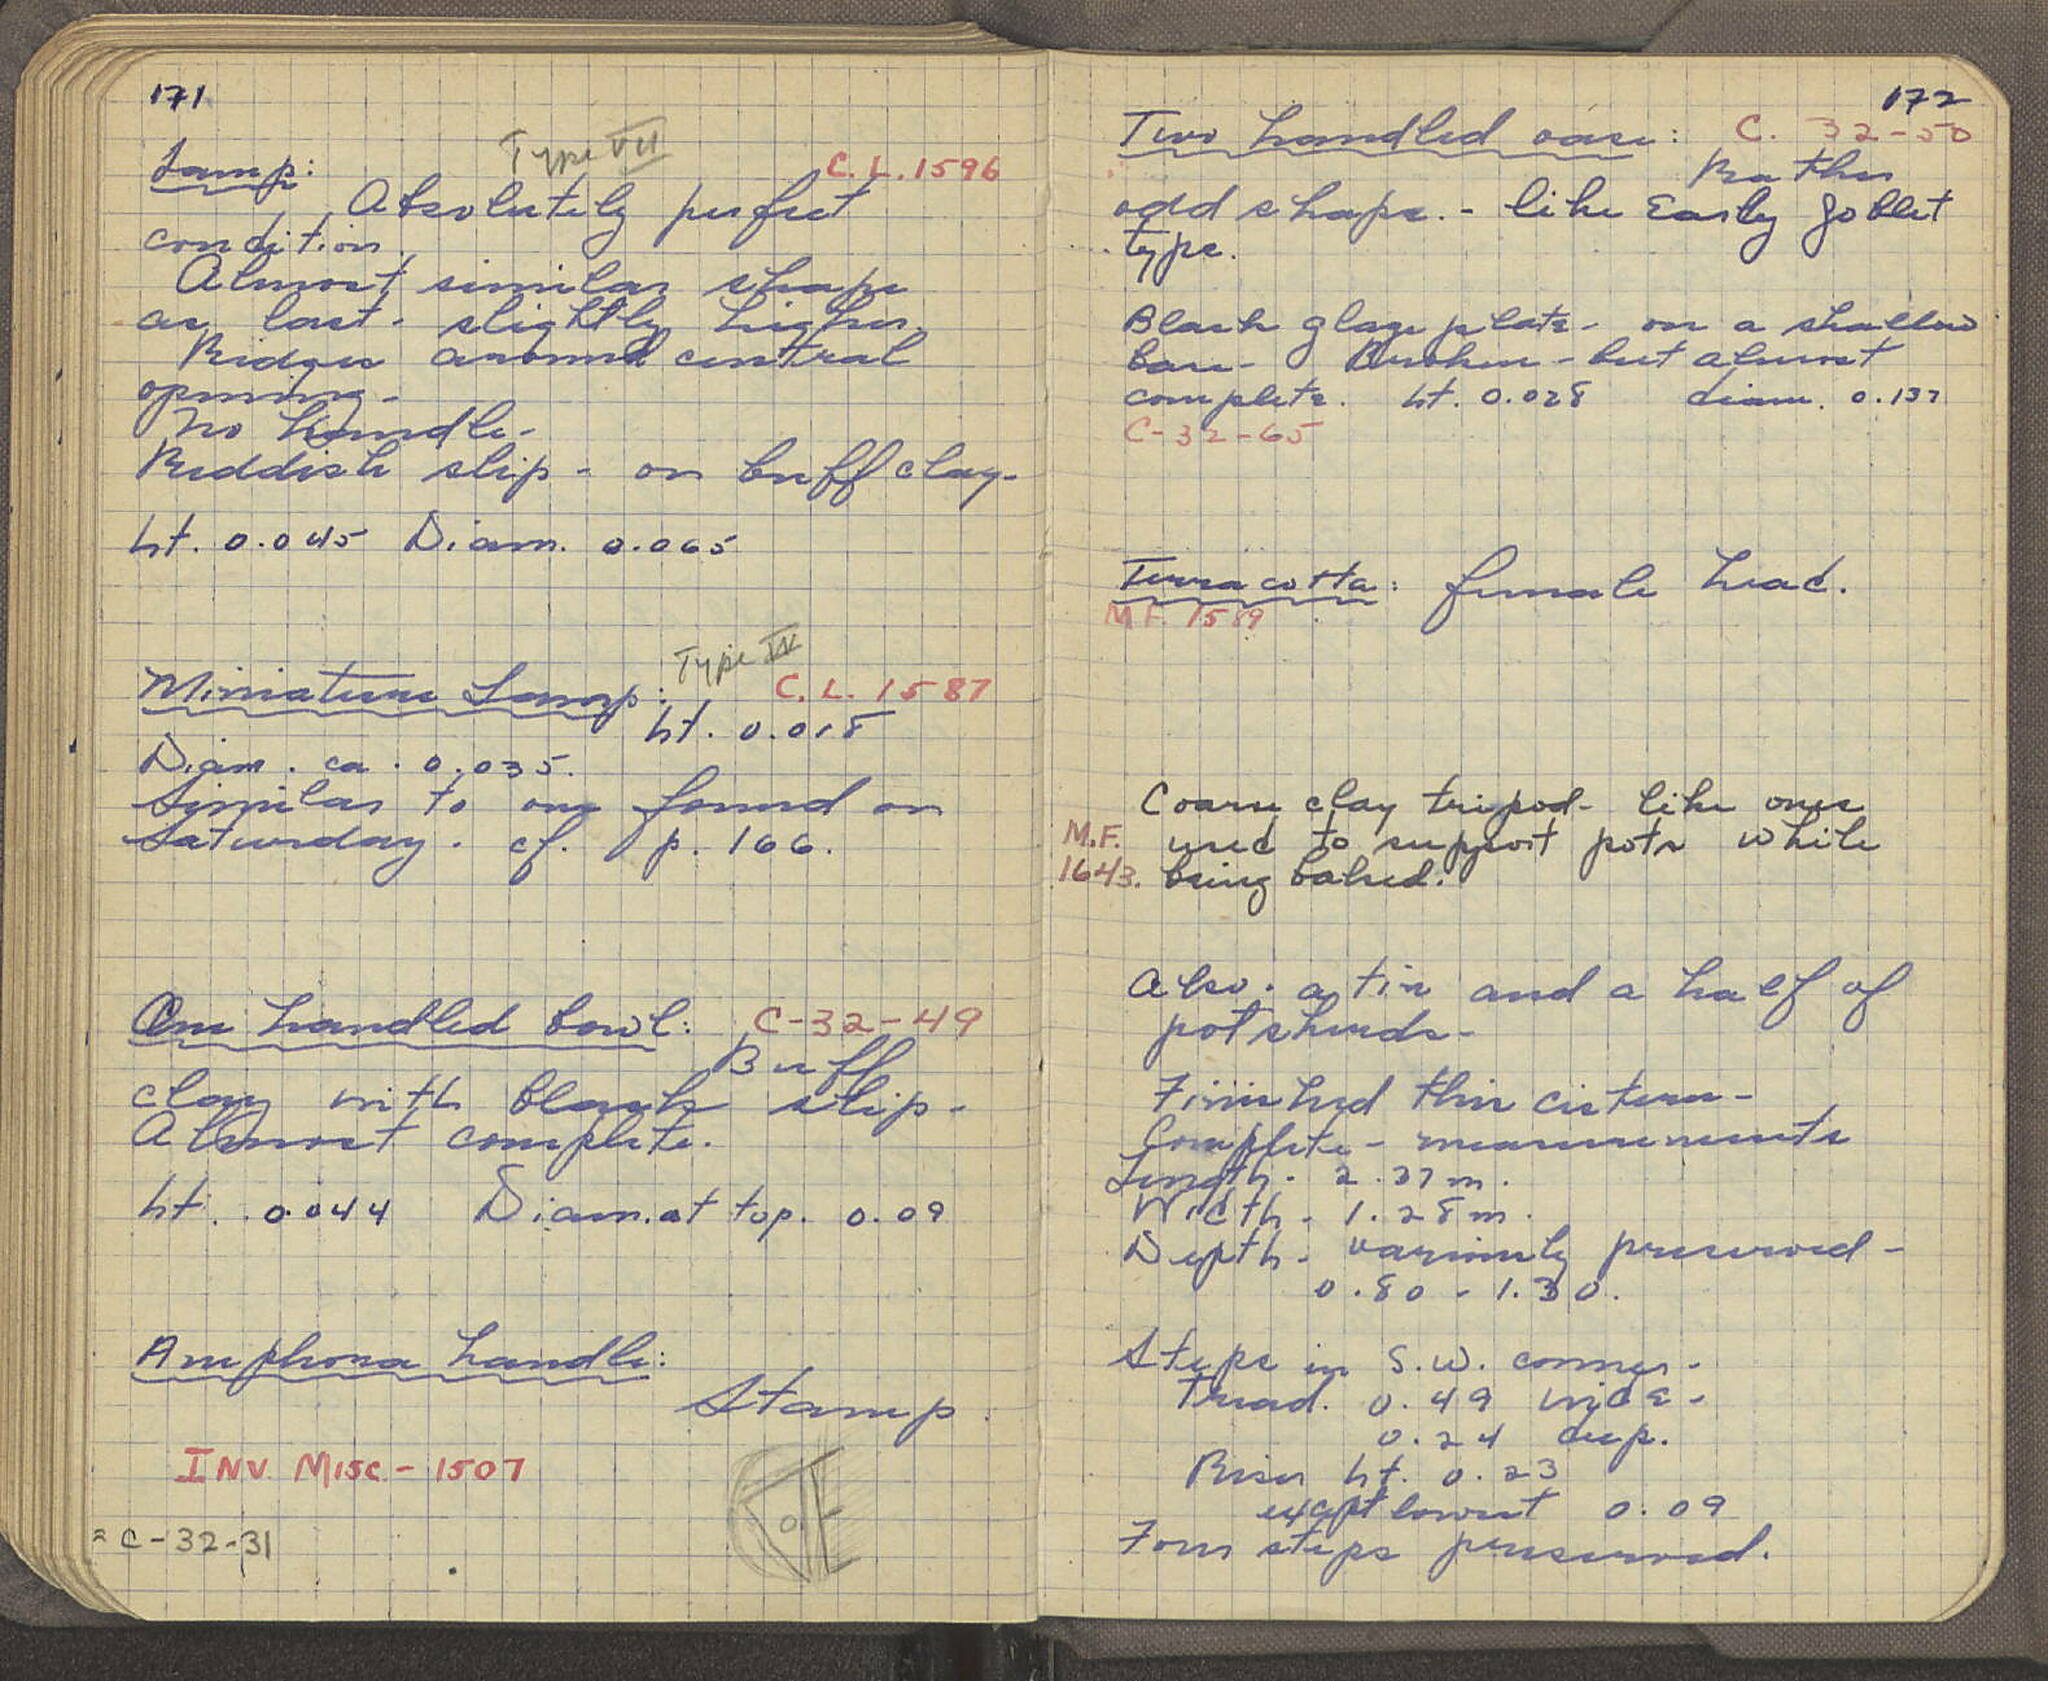 171
Lamp: Type VII C.L. 1596
Absolutely perfect
condition.
Almost similar shape
as last - slightly higher.
Ridges around central
opening -
No handle -
Reddish slip - on buff clay -
ht. 0.045 Diam. 0.065
Miniature Lamp: Type C.L. 1587
ht. 0.018
Diam. ca. 0.035.
Similar to one found on
Saturday. cf. p. 166.
One handled bowl: C-32-49
Buff
clay with black slip -
Almost complete.
ht. 0.044 Diam. at top. 0.09
Amphora handle:
Stamp
INV MISC - 1507
= C-32-31
172
Two handled vase: C. 32-50
Rather
odd shape. - like Early goblet
type.
Black glaze plate - on a shallow
base - Broken - but almost
complete. ht. 0.028 diam. 0.137
C-32-65
Terra cotta: female head.
M.F. 1589
Coarse clay tripod - like ones
M.F. used to support pots while
1643. being baked.
Also. a tin and a half of
potsherds -
Finished this cistern -
Complete - measurements
Length - 2.37 m.
Width - 1.28 m.
Depth - variously preserved -
0.80 - 1.30.
Steps in S.W. corner -
Tread. 0.49 wide -
0.24 deep.
Riser ht. 0.23
except lowest 0.09
Four steps preserved.